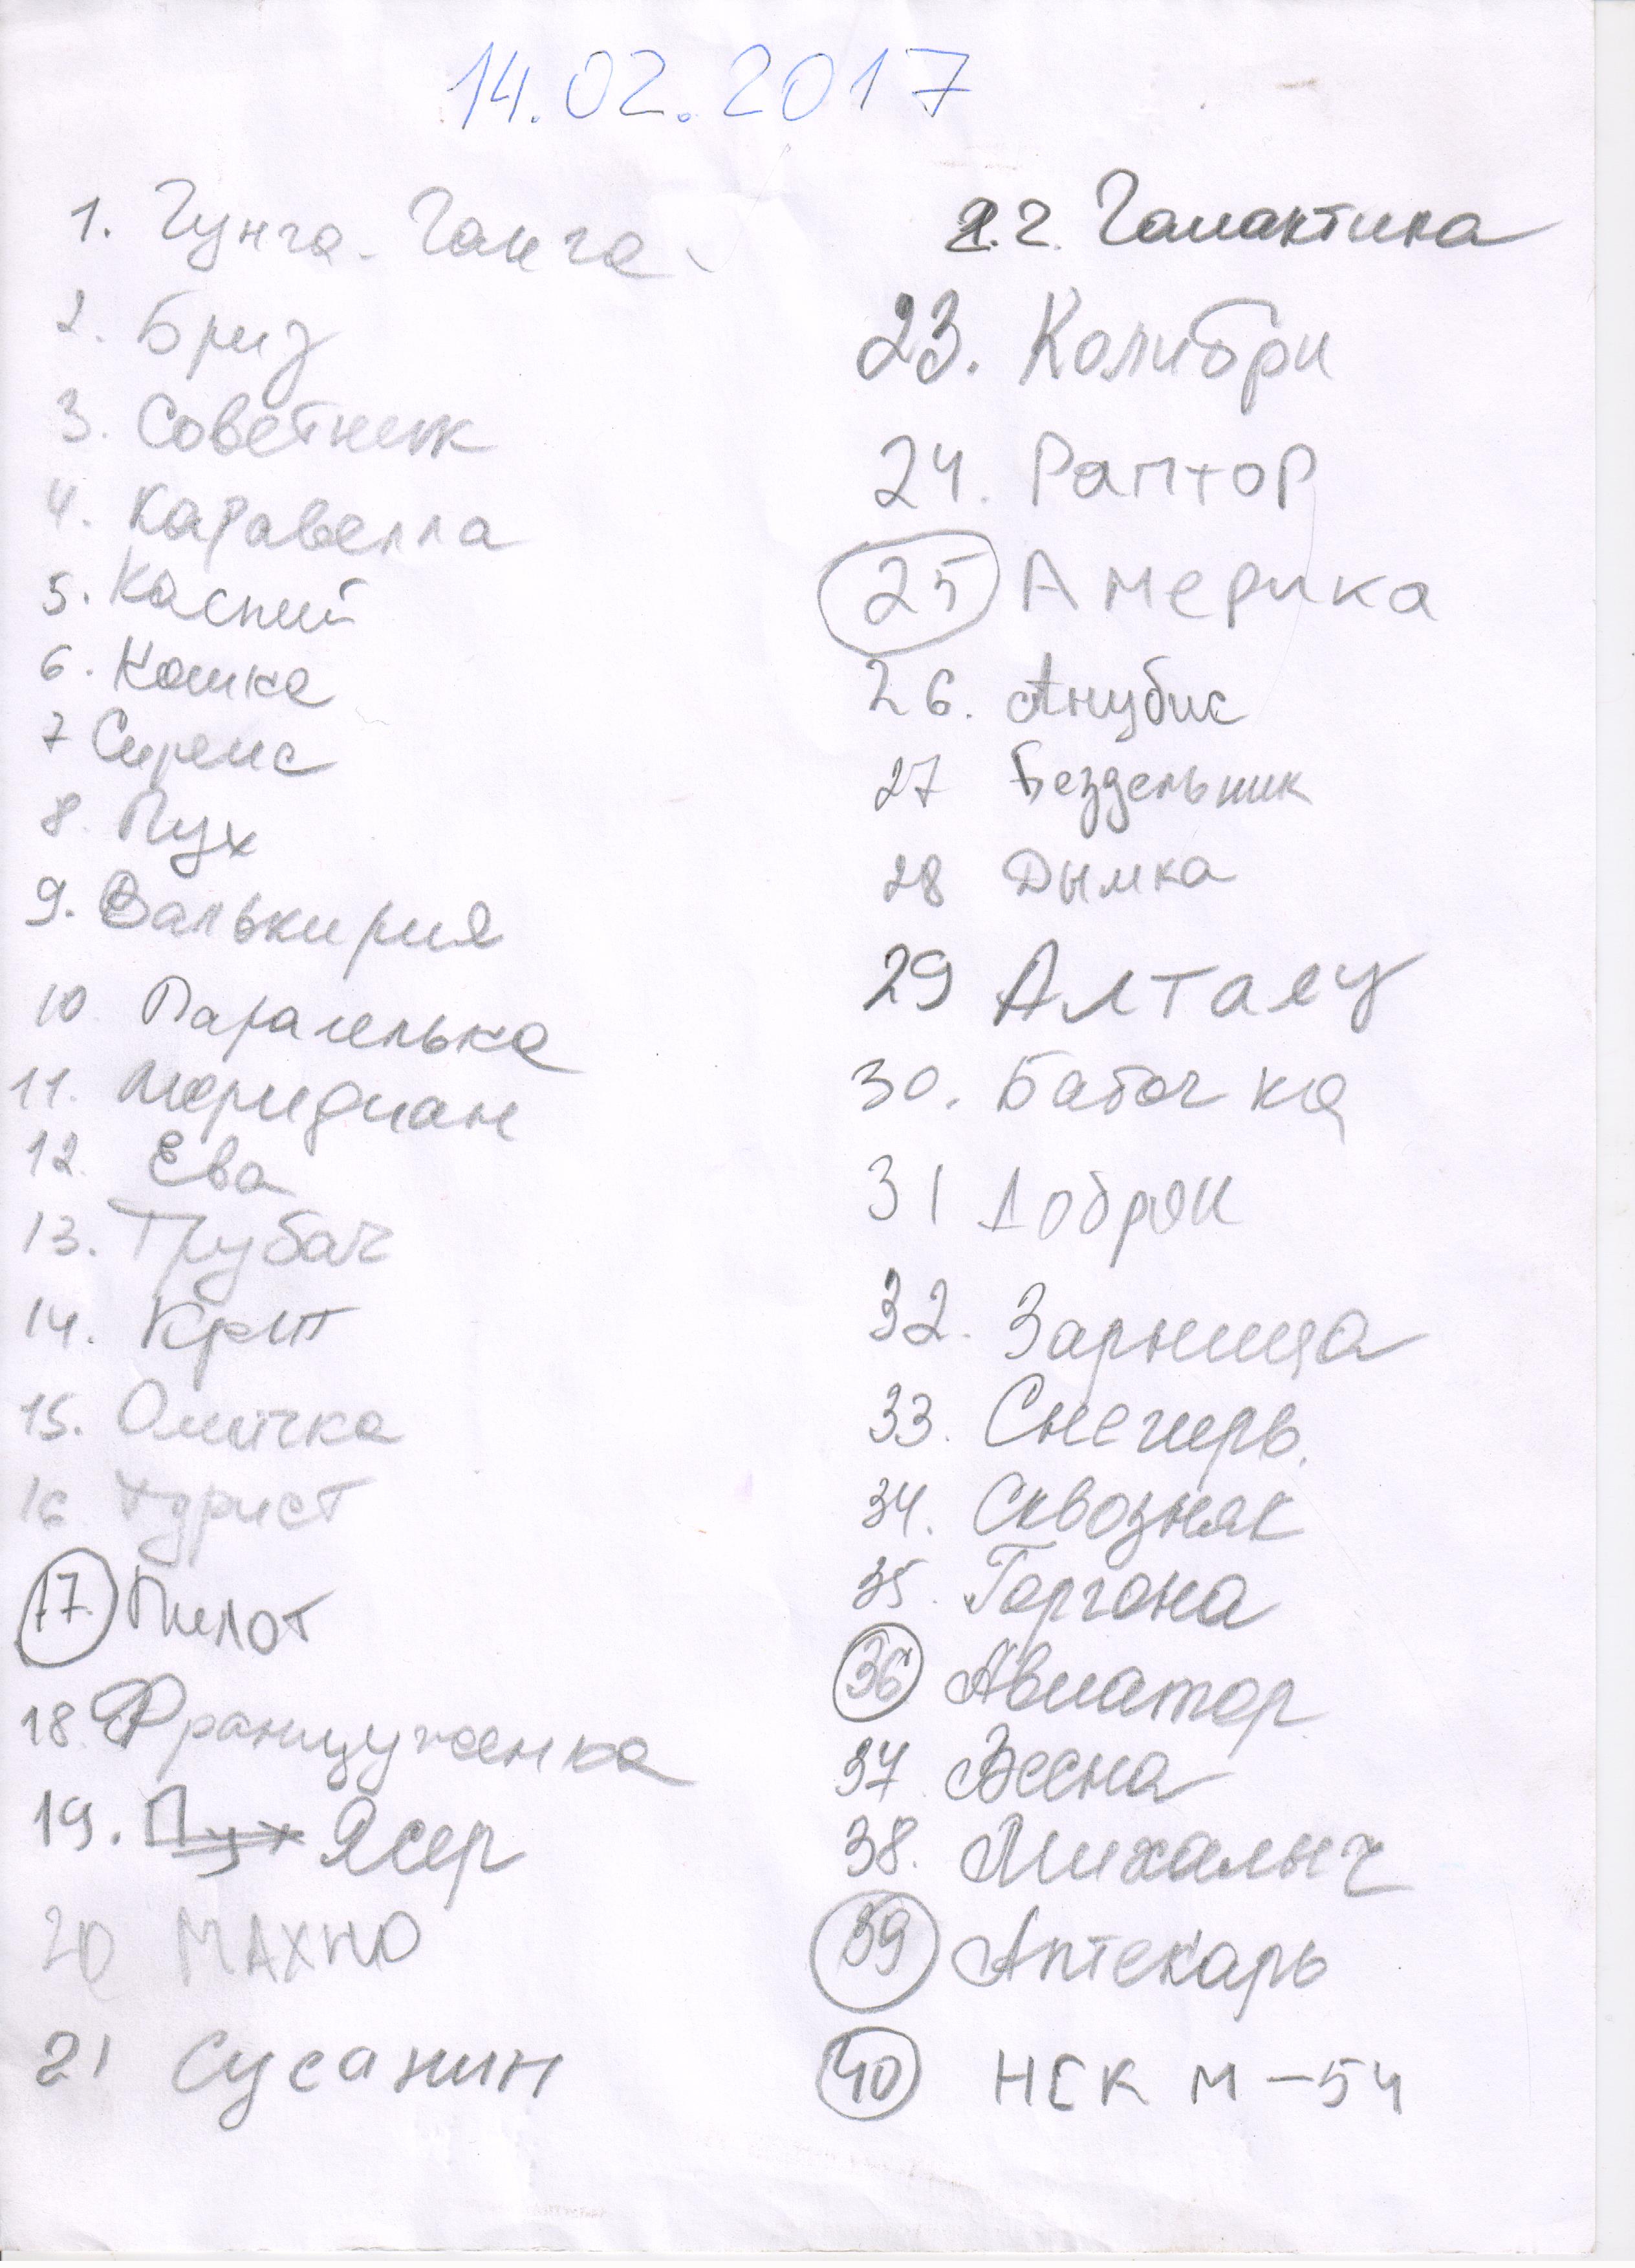 14.02.2017
1. Гунга-Ганга
2. Бриз
3. Советник
4. Каравелла
5. Каспий
6. Кошка
7 Сиренс
8. Пух
9. Валькирия
10 Параллелька
11. Меридиан
12. Ева
13. Трубач
14. Крит
15. Омичка
16 Турист
17. Пилот
18. Француженка
19. Пух Ясер
20 МАХНО
21 Сусанин
22. Галактика
23. Колибри
24. Раптор
25 Америка
26. Анубис
27 Бездельник
28 Дымка
29
30. Бабочка
31 Добряк
32. Зарница
33. Снегирь.
34. Сквозняк
35. Горгона
36 Авиатор
37 Весна
38. Михалыч
39 Аптекарь
40 НСК М-54